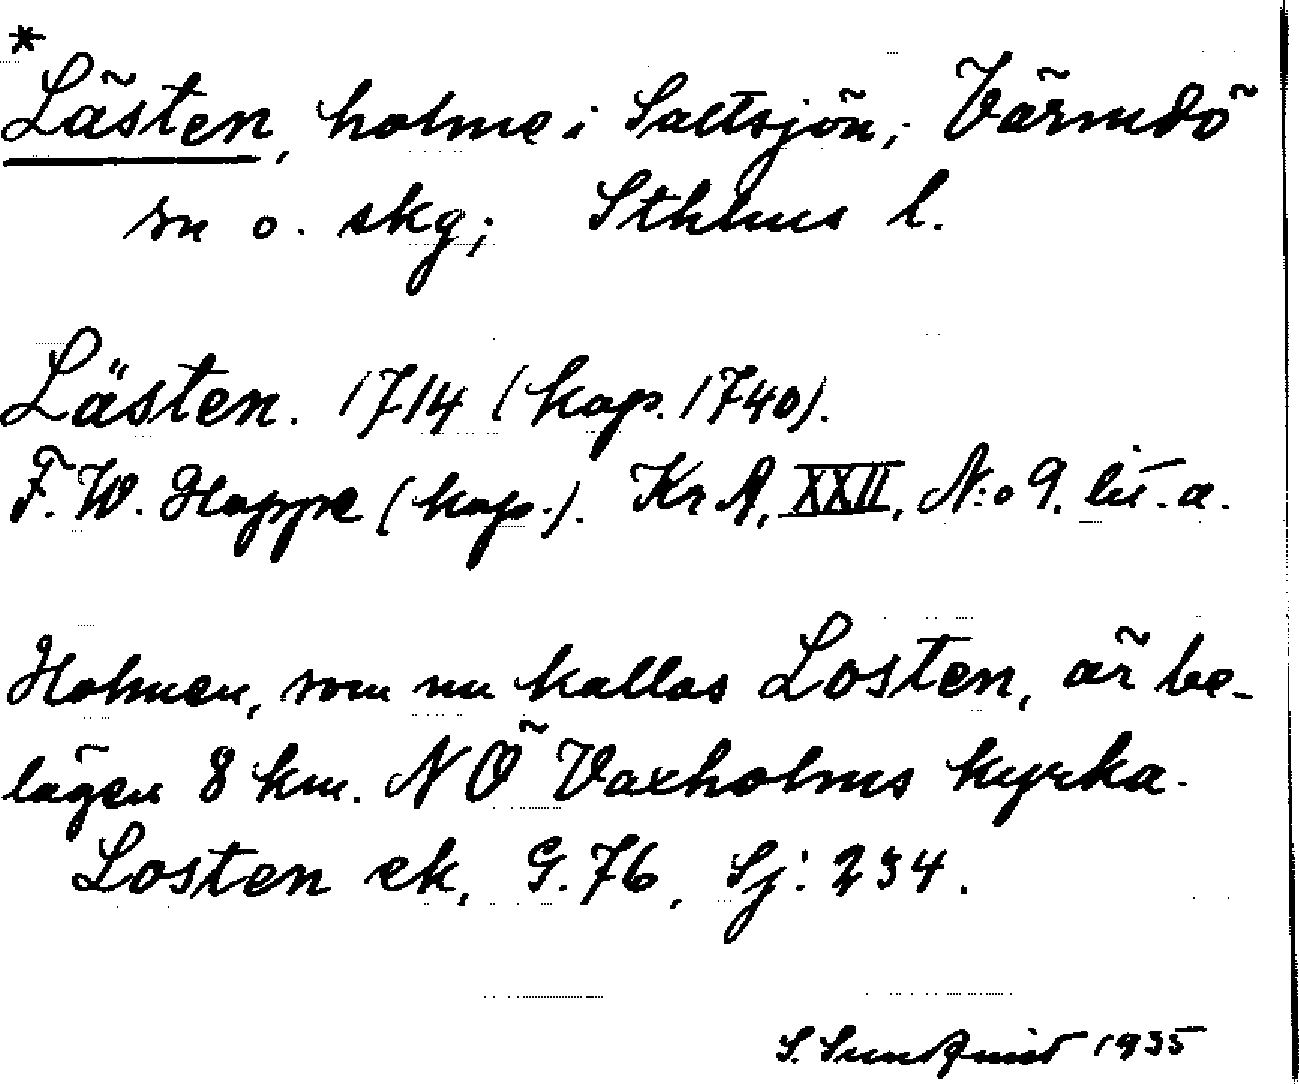 *
Lästen, holme i Saltsjön, Värmdö
sn o. skg; Sthlms l.
Lästen. 1714 (kop. 1740).
F. W. Hoppe (kop.). Kr A, XXII, N:o 9. lit. a.
Holmen, som nu kallas Losten, är be-
lägen 8 km. NÖ Vaxholms kyrka.
Losten ek, G. 76, Sj: 234.
S. Sundqvist 1935